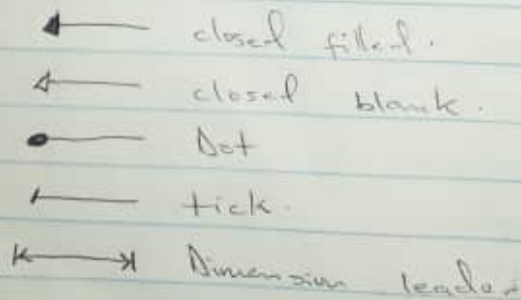 closed filled.
closed blank.
Dot
tick.
Dimension leader